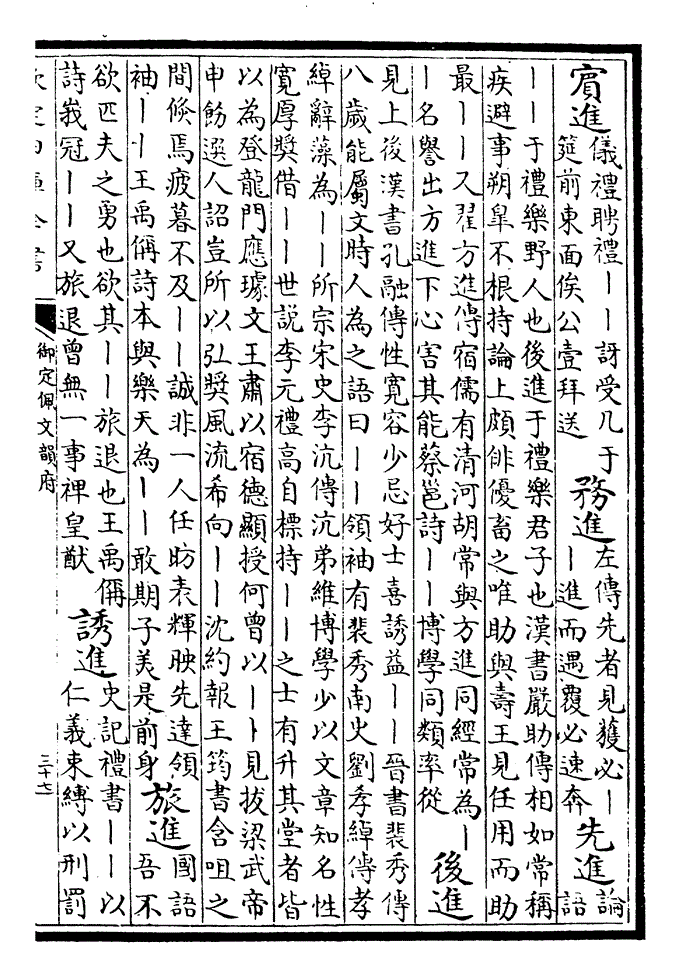 賔進
儀禮聘禮丨丨訝受几于
筵前東面俟公壹拜送
務進
左傳先者見獲必丨
丨進而遇覆必速奔
先進
論
語
丨丨于禮樂野人也後進于禮樂君子也漢書嚴助傳相如常稱
疾避事朔臯不根持論上頗俳優畜之唯助與壽王見任用而助
最丨丨又翟方進傳宿儒有清河胡常與方進同經常為丨
丨名譽出方進下心害其能蔡邕詩丨丨博學同類率從
後進
見上後漢書孔融傳性寛容少忌好士喜誘益丨丨晉書裴秀傳
八歲能屬文時人為之語曰丨丨領袖有裴秀南史劉孝綽傳孝
綽辭藻為丨丨所宗宋史李沆傳沆弟維博學少以文章知名性
寛厚奬借丨丨世説李元禮高自標持丨丨之士有升其堂者皆
以為登龍門應璩文王肅以宿德顯授何曾以丨丨見拔梁武帝
申飭選人詔豈所以弘奬風流希向丨丨沈約報王筠書含咀之
間倐焉疲暮不及丨丨誠非一人任昉表輝映先達領
袖丨丨王禹偁詩本與樂天為丨丨敢期子美是前身
旅進
國語
吾不
欲匹夫之勇也欲其丨丨旅退也王禹偁
詩峩冠丨丨又旅退曾無一事禆皇猷
誘進
史記禮書丨丨以
仁義束縛以刑罰
欽定四庫全書
御定佩文韻府
三十七